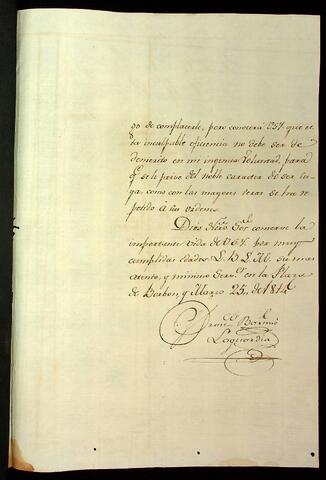 go de complacerle, pero conocerá VSY. que es
ta inculpable eficiencia no debe ser de
demerito en mi ingenua Voluntad, para
q.e se le prive del noble caracter de ser su
ya; como con las mayores veras se ha re
petido á sus ordenes.
Dios Nro Sor conserve la
importante vida de VSY. por muy
cumplidas edades
mas
atento, y minimo Serv.r en la Plaza
de Borbon, y Marzo 25, de 1814
Fran.co
Laguardia